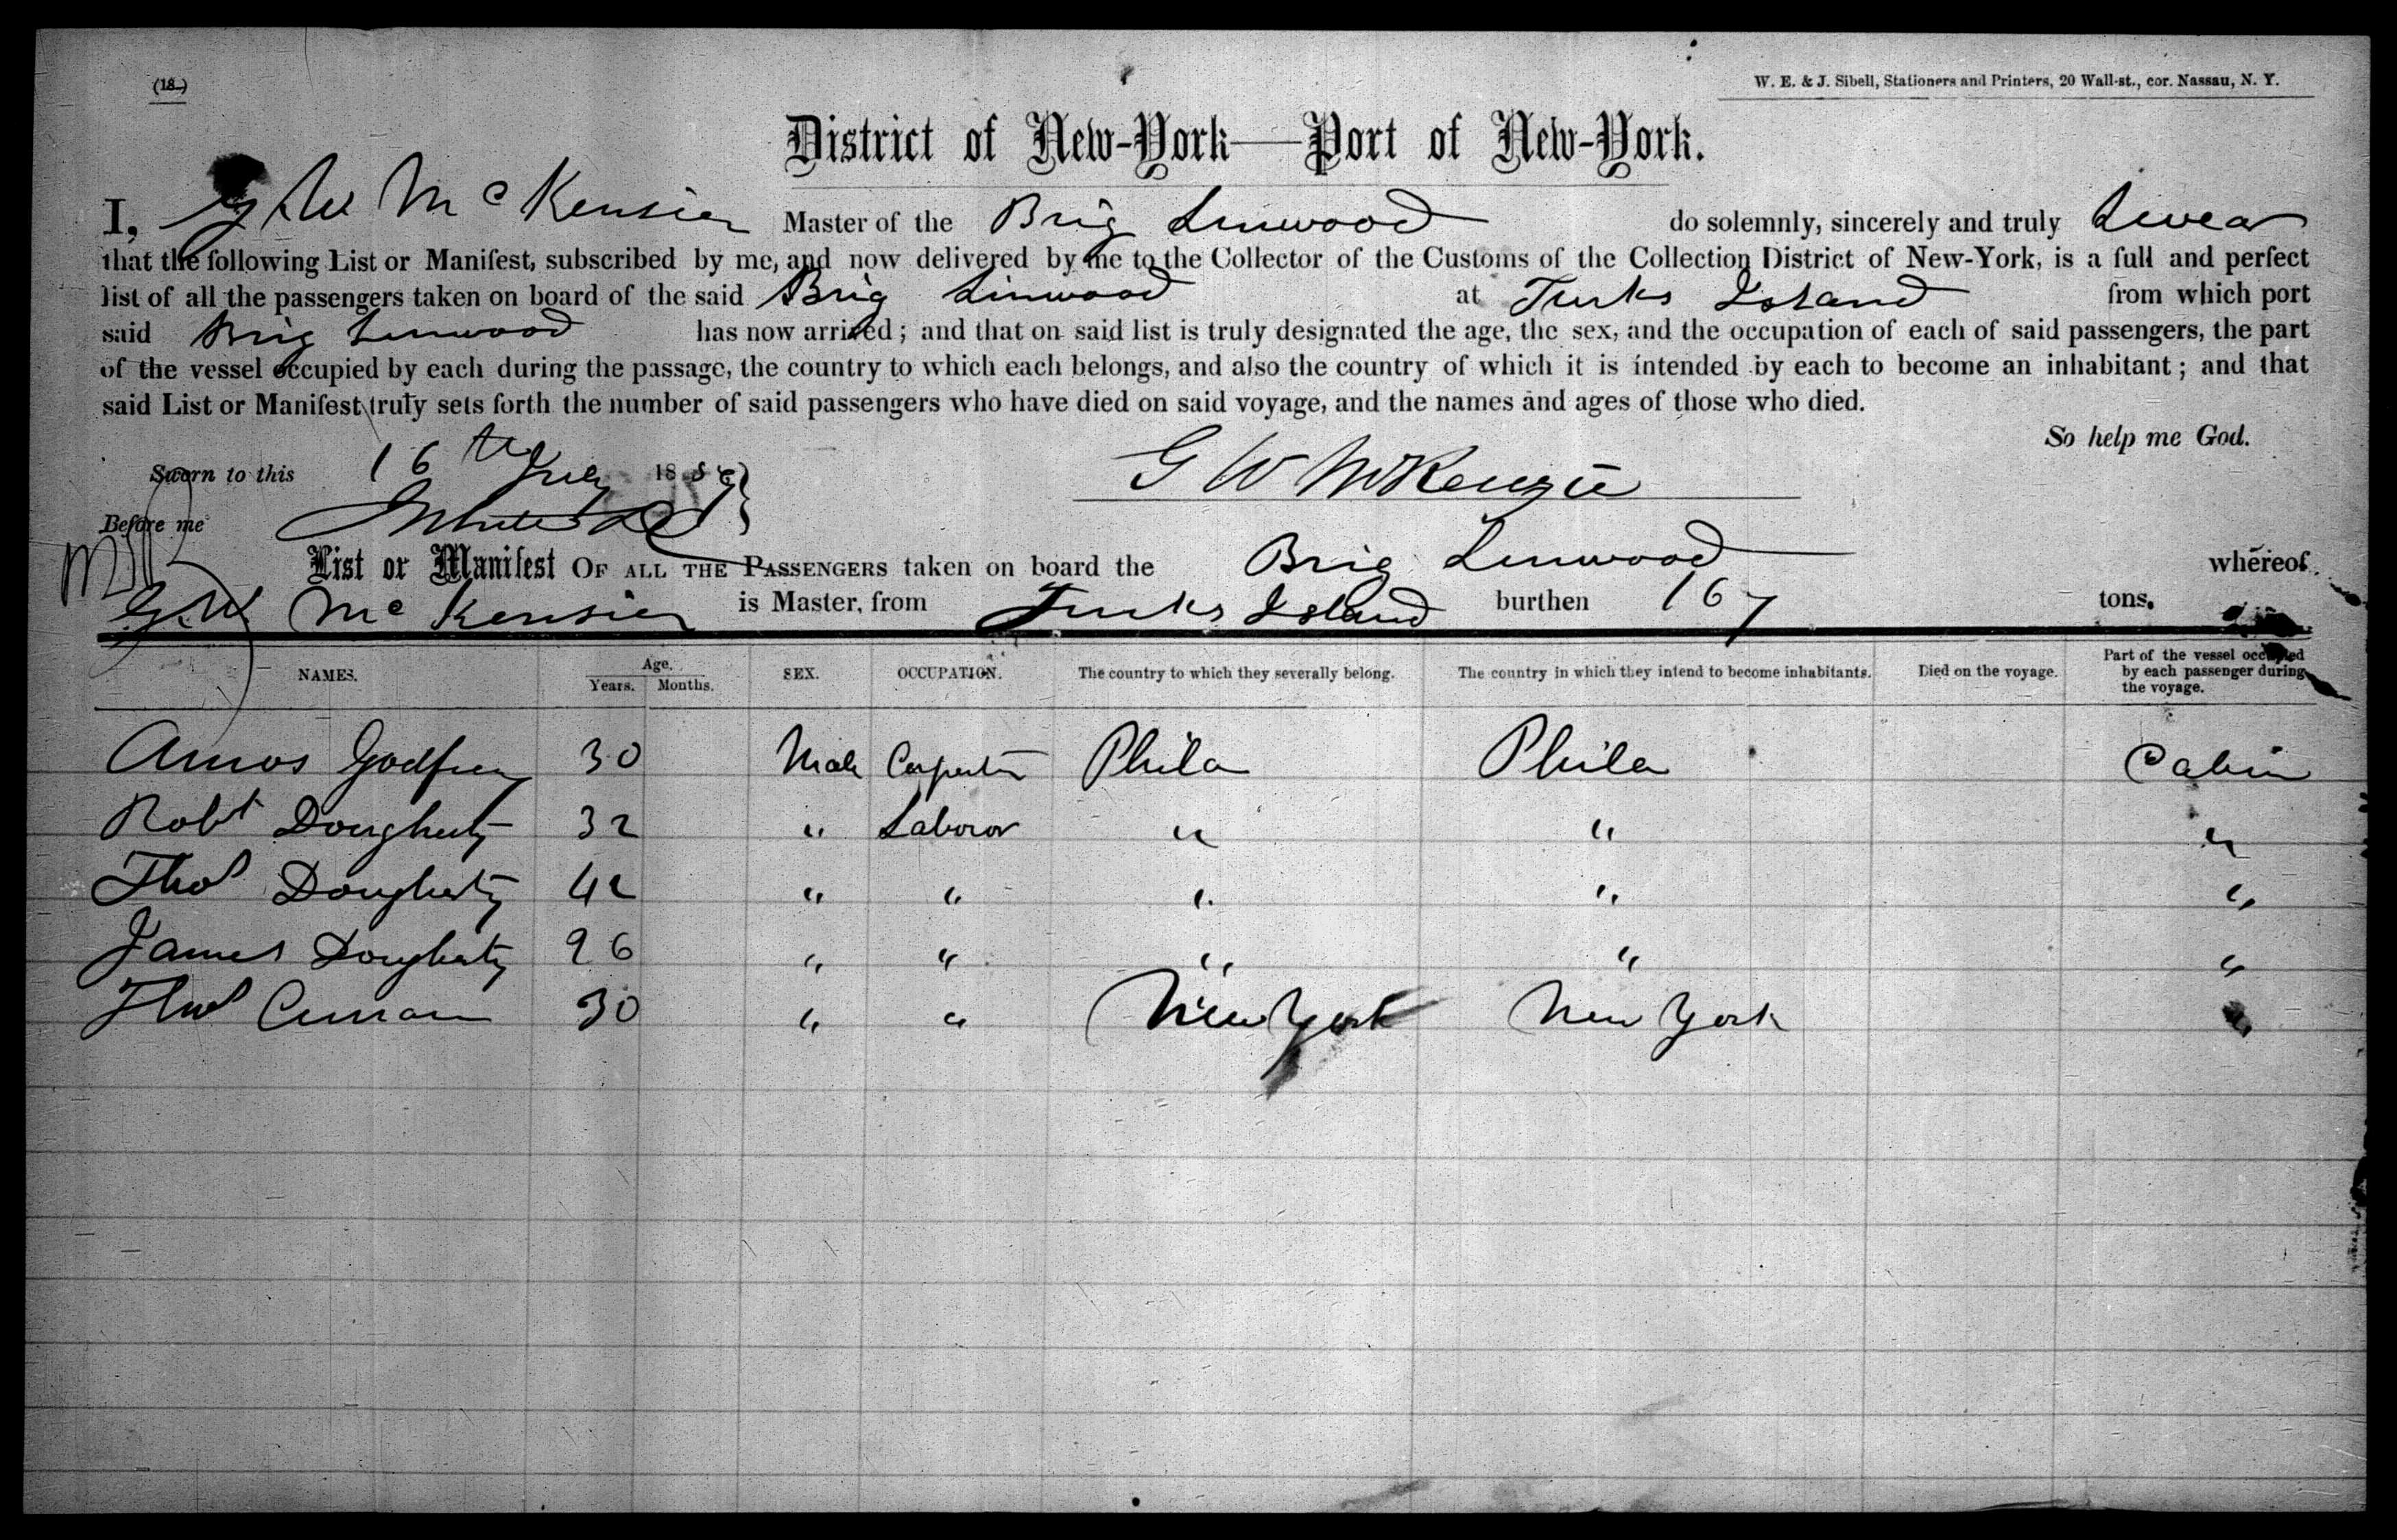 (18-)
W. E. & J. Sibell, Stationers and Printers, 20 Wall-st., cor. Nassau, N. Y.
District of New-York—Port of New-York.
I, G. W. McKensier Master of the Brig Linwood do solemnly, sincerely and truly Swear
that the following List or Manifest, subscribed by me, and now delivered by me to the Collector of the Customs of the Collection District of New-York, is a full and perfect
list of all the passengers taken on board of the said Brig Linwood at Turks Island from which port
said Brig Linwood has now arrived; and that on said list is truly designated the age, the sex, and the occupation of each of said passengers, the part
of the vessel occupied by each during the passage, the country to which each belongs, and also the country of which it is intended by each to become an inhabitant; and that
said List or Manifest truly sets forth the number of said passengers who have died on said voyage, and the names and ages of those who died.
So help me God.
Sworn to this 16th July 18
G W McKenzie
Before me
List or Manifest OF ALL THE PASSENGERS taken on board the Brig Linwood whereof
G. W. McKensier is Master, from Turks Island burthen 167 tons.
NAMES. Age. Years. Months. SEX. OCCUPATION. The country to which they severally belong. The country in which they intend to become inhabitants. Died on the voyage. Part of the vessel occupied by each passenger during the voyage.
Amos Godfrey 30 Male Carpenter Phila Phila Cabin
Robt Dougherty 32 " Laboror " " "
Thos Dougherty 42 " " " " "
James Dougherty 26 " " " " "
Thos Curran 30 " " New York New York "